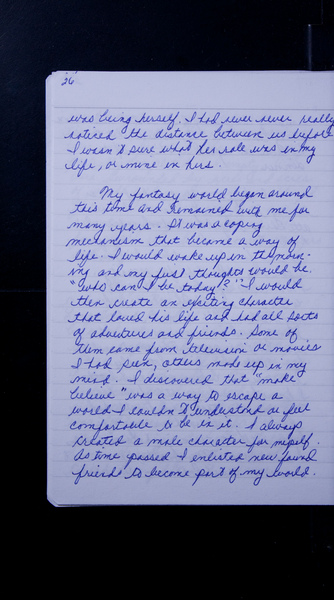 26
was being herself. I had never never really
noticed the distance between us before
I wasn't sure what her role was in my
life, or mine in hers.
My fantasy world began around
this time and remained with me for
many years. It was a coping
mechanism that became a way of
life. I would wake up in the morn-
ing and my first thoughts would be,
"who can I be today?" I would
then create an exciting character
that loved his life and had all sorts
of adventures and friends. Some of
them came from television or movies
I had seen, others made up in my
mind. I discovered that "make
believe" was a way to escape a
world I couldn't understand or feel
comfortable to be in it. I always
created a male character for myself.
As time passed I enlisted new found
friends to become part of my world.